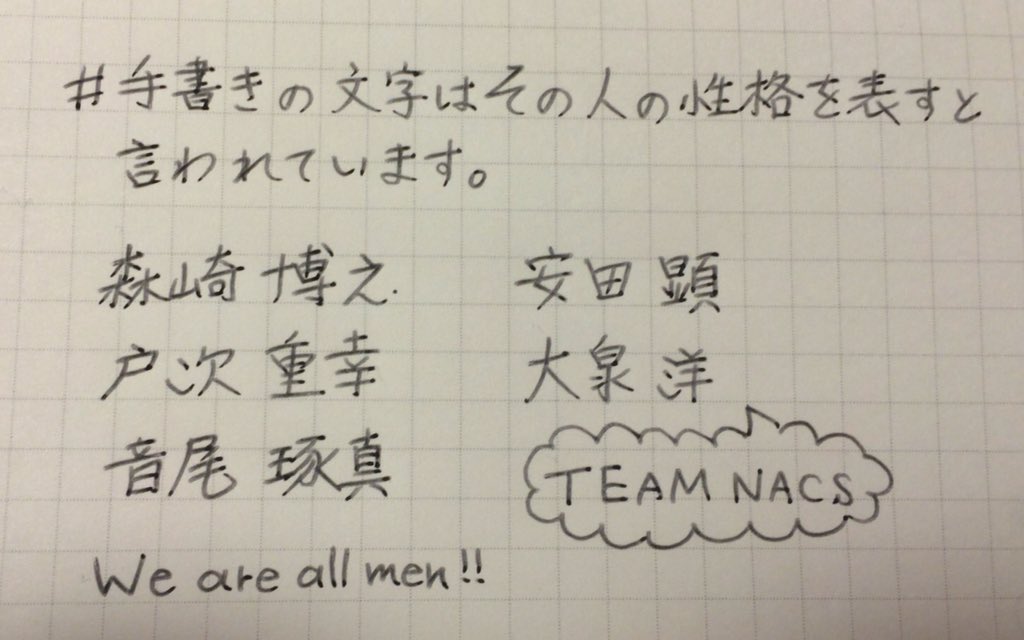 #手書きの文字はその人の性格を表すと
言われています。
森崎 博之 安田 顕
戸次 重幸 大泉 洋
音尾 琢真 TEAM NACS
We are all men!!